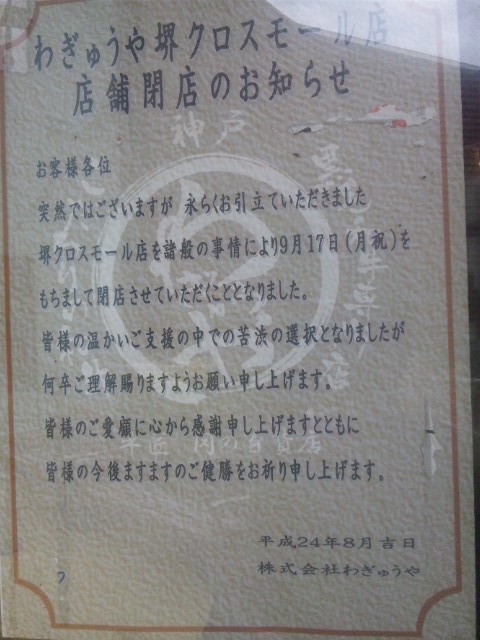 わぎゅうや堺クロスモール店
店舗閉店のお知らせ
神戸
お客様各位
突然ではございますが 永らくお引立ていただきました
堺クロスモール店を諸般の事情により9月17日(月祝)を
もちまして閉店させていただくこととなりました。
皆様の温かいご支援の中での苦渋の選択となりましたが
何卒ご理解賜りますようお願い申し上げます。
皆様のご愛顧に心から感謝申し上げますとともに
皆様の今後ますますのご健勝をお祈り申し上げます。
平成24年8月吉日
株式会社わぎゅうや